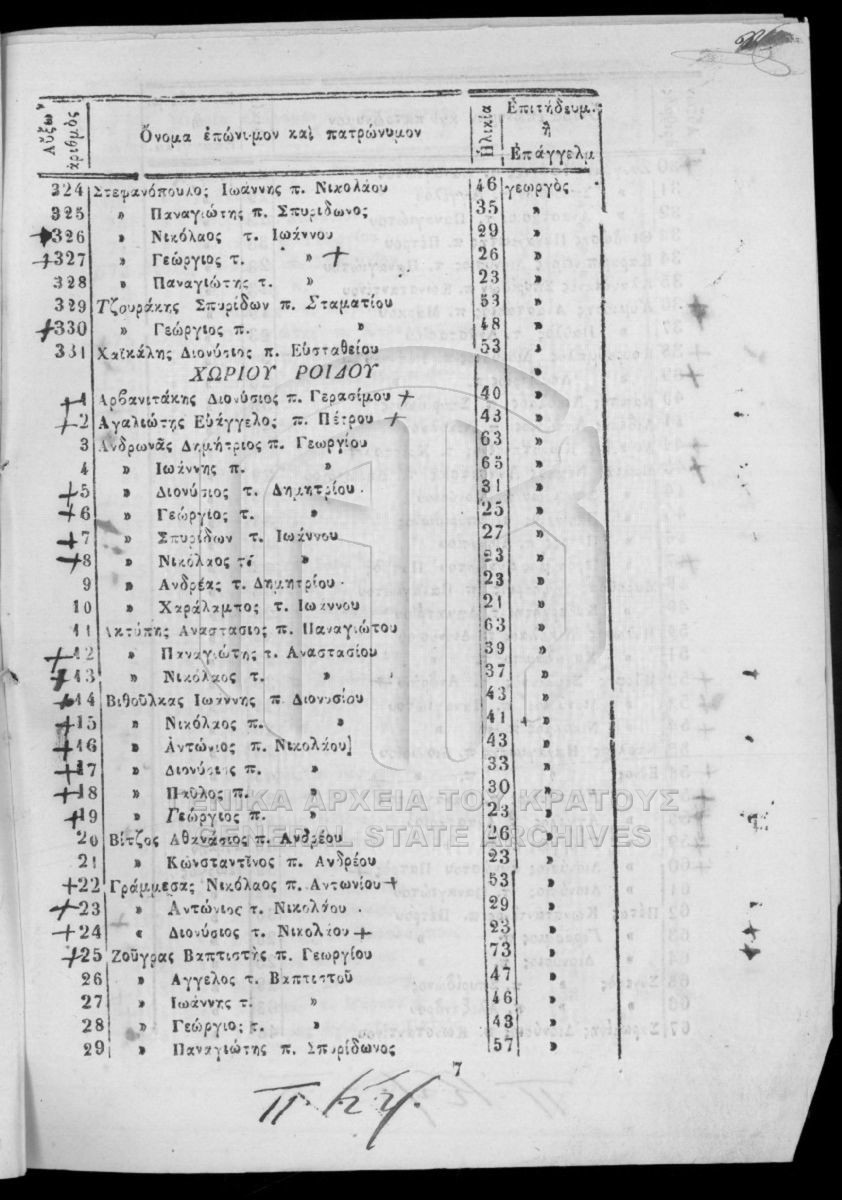 Αὔξων ἀριθμὸς Ὄνομα ἐπώνυμον καὶ πατρώνυμον Ἡλικία Ἐπιτήδευμ. ἢ Ἐπάγγελμ
324 Στεφανόπουλος Ἰωάννης π. Νικολάου 46 γεωργὸς
325 » Παναγιώτης π. Σπυρίδωνος 35 »
+326 » Νικόλαος τ. Ἰωάννου 29 »
+327 » Γεώργιος τ. » + 26 »
328 » Παναγιώτης τ. » 23 »
329 Τζουράκης Σπυρίδων π. Σταματίου 53 »
+330 » Γεώργιος π. » 48 »
331 Χαϊκάλης Διονύσιος π. Εὐσταθείου 53 »
ΧΩΡΙΟΥ ΡΟΙΔΟΥ »
+1 Αρβανιτάκης Διονύσιος π. Γερασίμου + 40 »
+2 Αγαλιώτης Εὐάγγελος π. Πέτρου + 43 »
3 Ανδρωνᾶς Δημήτριος π. Γεωργίου 63 »
4 » Ἰωάννης π. » 65 »
+5 » Διονύσιος τ. Δημητρίου. 31 »
+6 » Γεώργιος τ. » 25 »
+7 » Σπυρίδων τ. Ἰωάννου 27 »
+8 » Νικόλαος τ. » 23 »
9 » Ανδρέας τ. Δημητρίου. 23 »
10 » Χαράλαμπος τ. Ιωαννου 21 »
11 Ακτύπης Αναστασιος π. Παναγιώτου 63 »
+12 » Παναγιώτης τ. Αναστασίου 39 »
+13 » Νικόλαος τ. » 37 »
+14 Βιθοῦλκας Ἰωάννης π. Διονυσίου 43 »
+15 » Νικόλαος π. » 41 + »
+16 » Ἀντώνιος π. Νικολάου 43 »
+17 » Διονύσιος π. » 33 »
+18 » Παῦλος π. » 30 »
+19 » Γεώργιος π. » 23 »
20 Βίτζος Αθανάσιος π. Ανδρέου 26 »
21 » Κωνσταντῖνος π. Ανδρέου 23 »
+22 Γράμμεσας Νικόλαος π. Αντωνίου + 53 »
+23 » Αντώνιος τ. Νικολάου. 29 »
+24 « Διονύσιος τ. Νικολάου + 23 »
+25 Ζοῦγρας Βαπτιστὴς π. Γεωργίου 73 »
26 » Αγγελος τ. Βαπτιστοῦ 47 »
27 » Ιωάννης τ. » 46 »
28 » Γεώργιος τ. » 43 »
29 » Παναγιώτης π. Σπυρίδωνος 57 »
7
ΓΕΝΙΚΑ ΑΡΧΕΙΑ ΤΟΥ ΚΡΑΤΟΥΣ
GENERAL STATE ARCHIVES